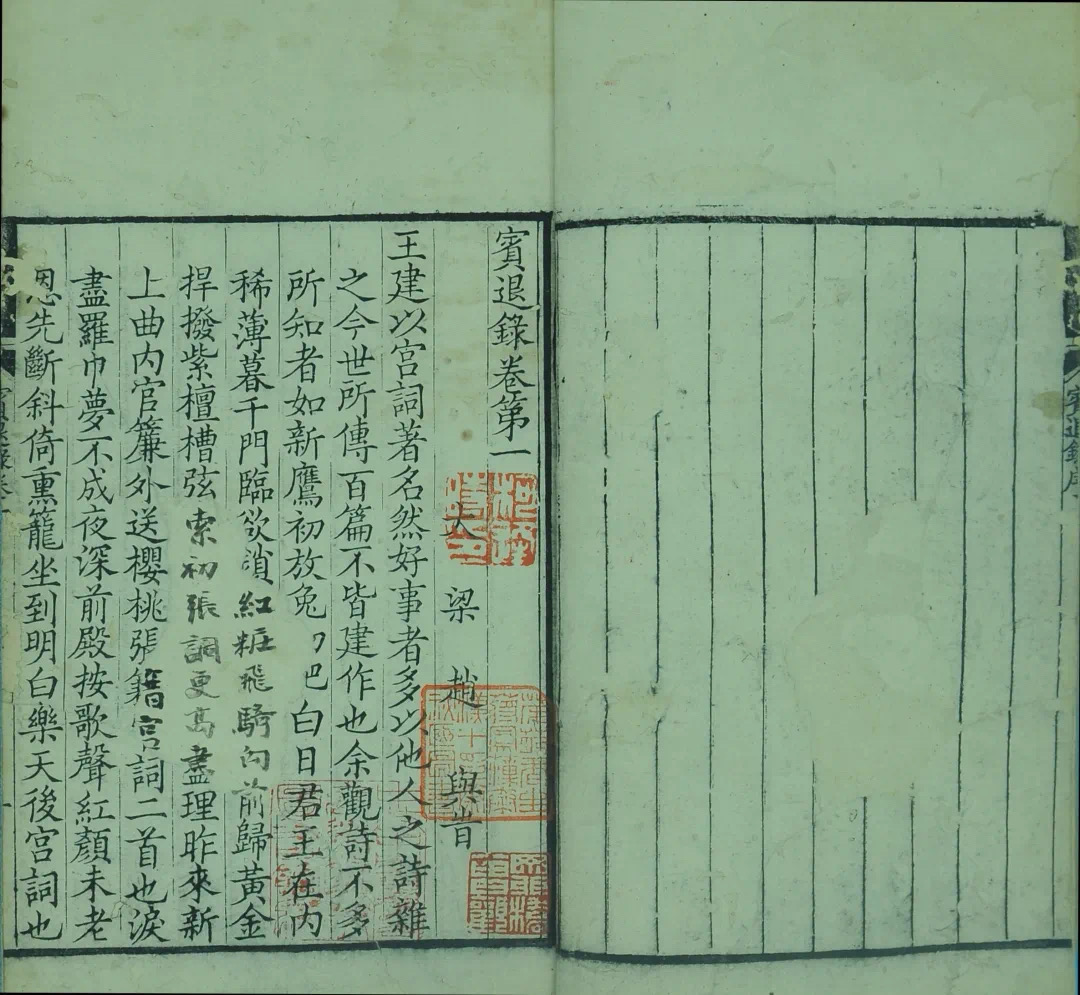 賓退錄卷第一
大 梁 趙 與旹
王建以宮詞著名然好事者多以他人之詩雜
之今世所傳百篇不皆建作也余觀詩不多
所知者如新鷹初放兔 巴白日君王在內
稀薄暮千門臨欲鎖紅粧飛騎向前歸黃金
捍撥紫檀槽弦索初張調更高盡理昨來新
上曲內官簾外送櫻桃張籍宮詞二首也淚
盡羅巾夢不成夜深前殿按歌聲紅顏未老
恩先斷斜倚熏籠坐到明白樂天後宮詞也
賓退錄序